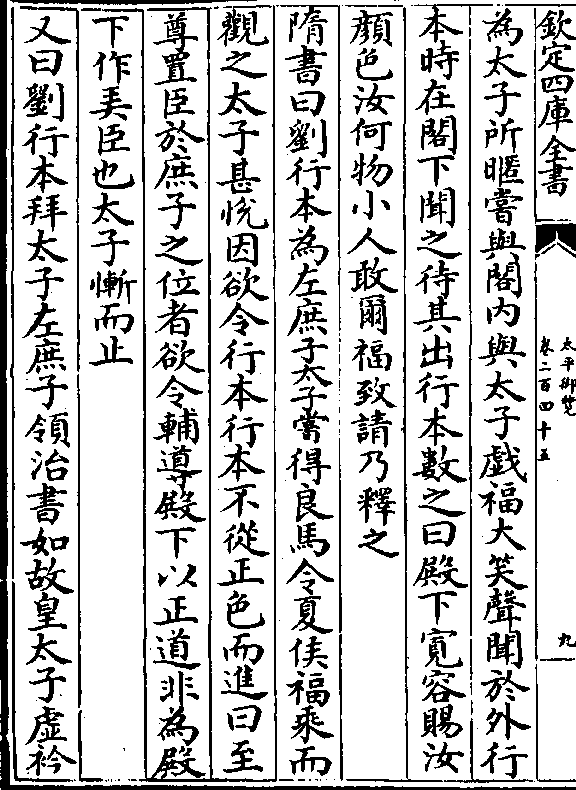 欽定四庫全書
太平御覽
卷二百四十五
九
為太子所暱嘗與閤内與太子戱福大笑聲聞於外行
本時在閤下聞之待其出行本數之曰殿下寛容賜汝
顔色汝何物小人敢爾福致請乃釋之
隋書曰劉行本為左庶子太子嘗得良馬令夏侯福乗而
觀之太子甚恱因欲令行本行本不從正色而進曰至
尊置臣於庶子之位者欲令輔導殿下以正道非為殿
下作弄臣也太子慚而止
又曰劉行本拜太子左庶子領治書如故皇太子虚衿